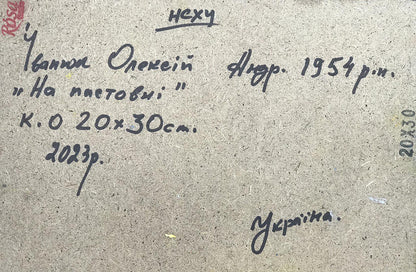 НСХУ
Іванюк Олексій Андр. 1954 р.н.
"На пастовні"
К. О 20х30 см.
2023р.
Україна.
20X30